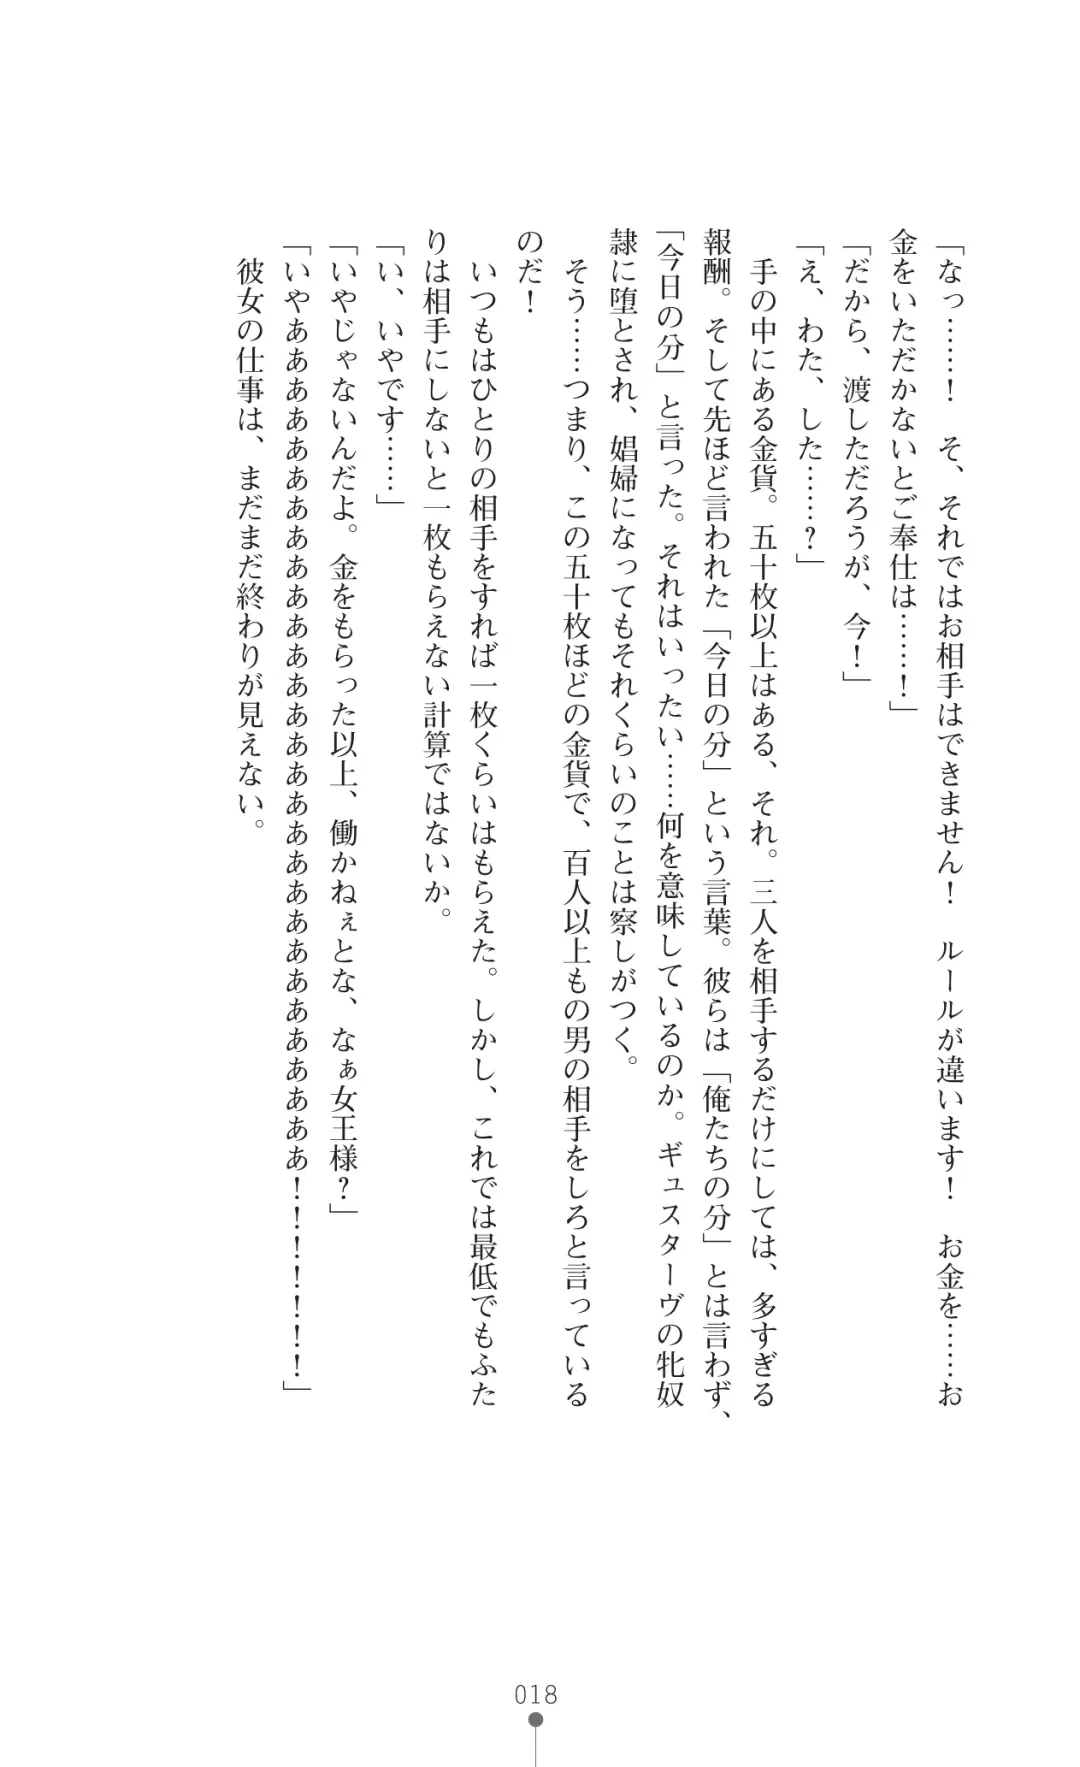 「なっ……！　そ、それではお相手はできません！　ルールが違います！　お金を……お
金をいただかないとご奉仕は……！」
「だから、渡しただろうが、今！」
「え、わた、した……？」
　手の中にある金貨。五十枚以上はある、それ。三人を相手するだけにしては、多すぎる
報酬。そして先ほど言われた「今日の分」という言葉。彼らは「俺たちの分」とは言わず、
「今日の分」と言った。それはいったい……何を意味しているのか。ギュスターヴの牝奴
隷に堕とされ、娼婦になってもそれくらいのことは察しがつく。
　そう……つまり、この五十枚ほどの金貨で、百人以上もの男の相手をしろと言っている
のだ！
　いつもはひとりの相手をすれば一枚くらいはもらえた。しかし、これでは最低でもふた
りは相手にしないと一枚もらえない計算ではないか。
「い、いやです……」
「いやじゃないんだよ。金をもらった以上、働かねぇとな、なぁ女王様？」
「いやあああああああああああああああああああああああああああああ！！！！！！！」
　彼女の仕事は、まだまだ終わりが見えない。
018